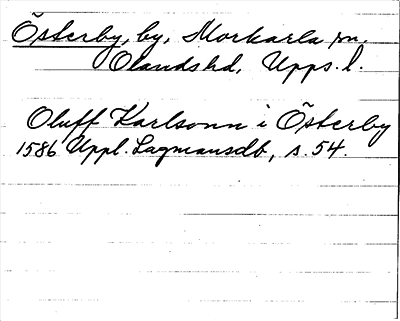 Österby, by, Morkarla sn.
Olands hd, Upps. l.
Oluff Karlsonn i Österby
1586 Uppl. Lagmansdb, s. 54.